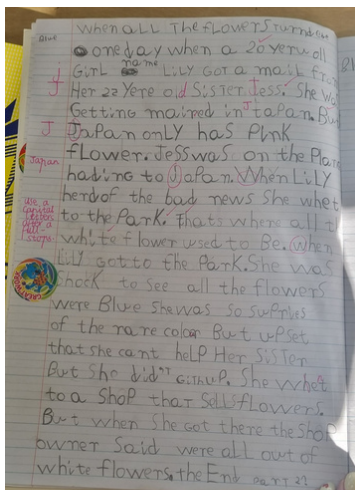 When ALL The FLowers turnd
Blue
one day when a 20 yer oll
GirL name LiLy GoT a maiL from
Her 22 Yere old SisTer Jess. She was
Getting maired in JaPan. But
J JaPan onLY has Pink
flower. Jess was on the Plane
Japan hading to JaPan. When LiLY
herd of the bad news She whet
to the Park. Thats where all the
use a capital letter after a full stop.
white flower used to Be. when
LiLy got to the Park. She was
shock to see all the flowers
were Blue She was so supries
of the rare colour But upset
that she cant help Her SisTer
But She did'nt GiTh uP. She whet
to a Shop that Sells flowers.
But when She got there the Shop
owner Said were all out of
white flowers. the End Part 2!